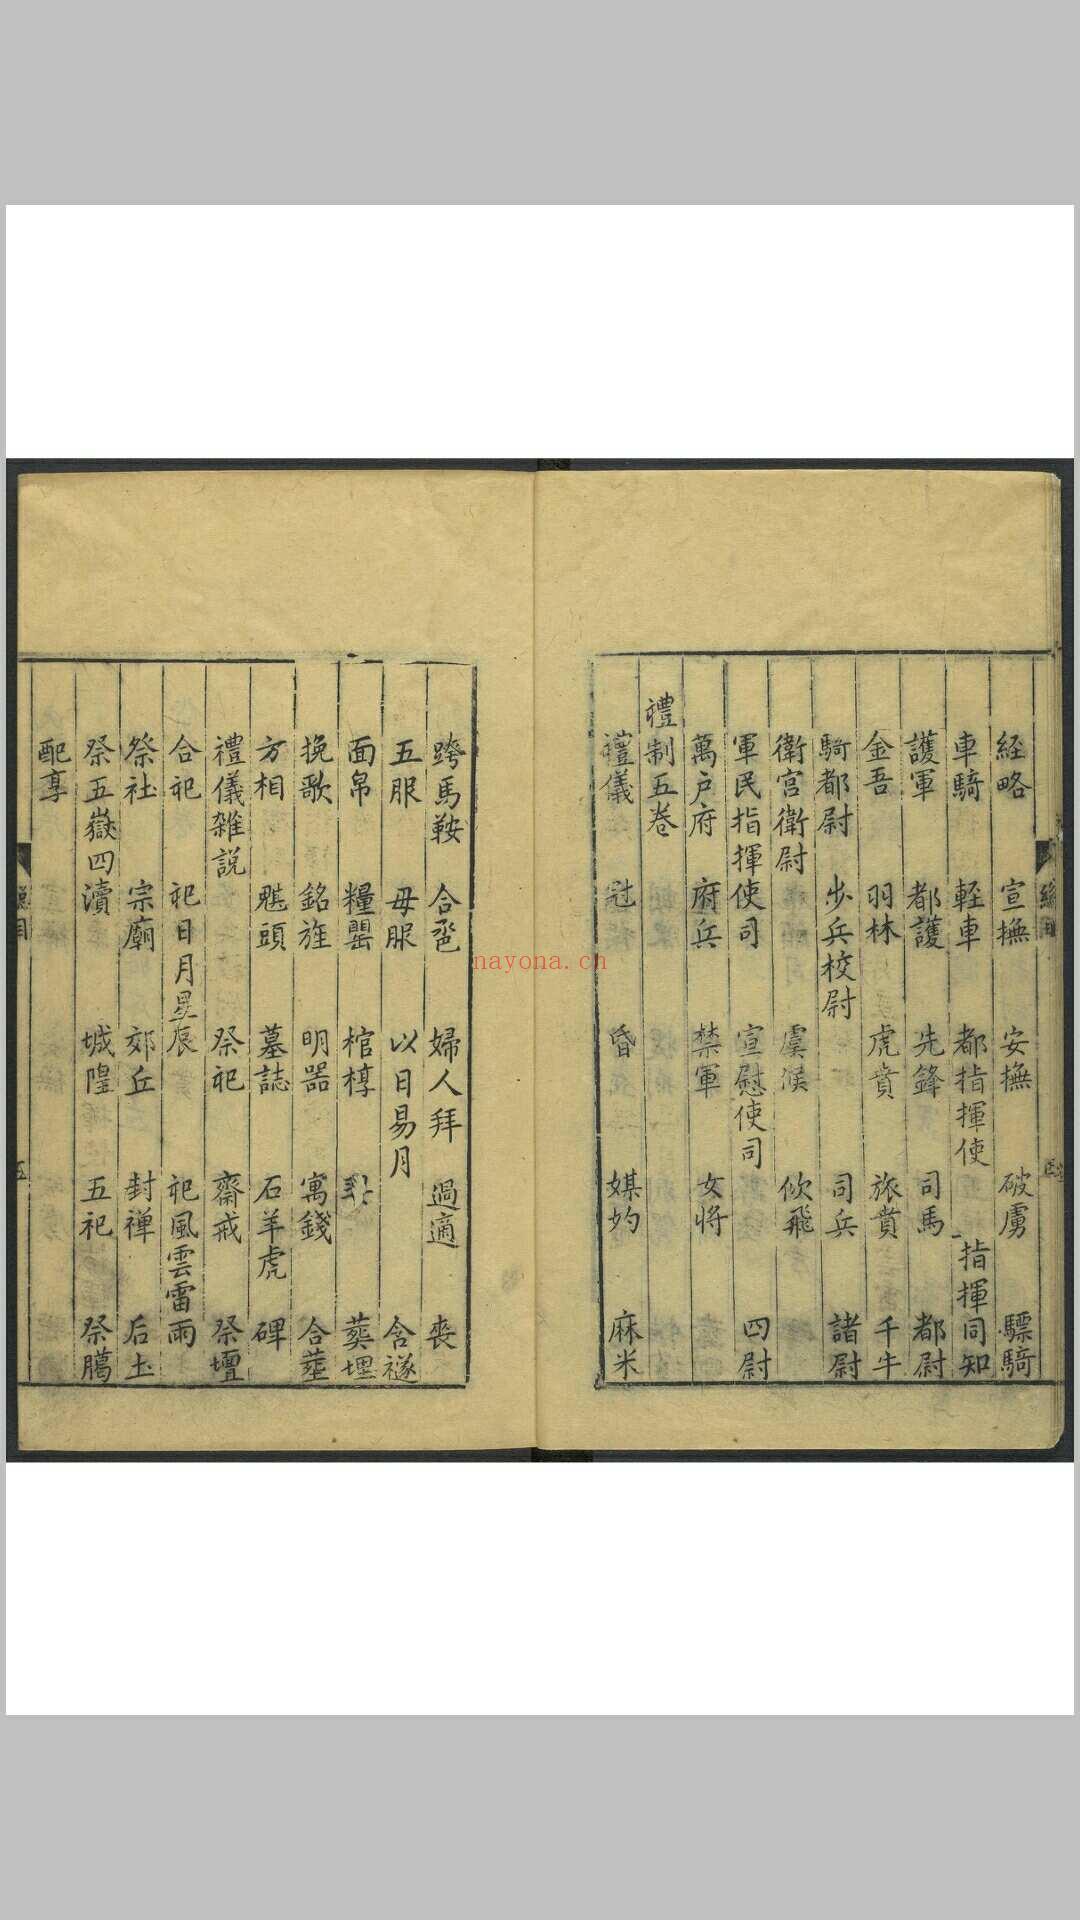 経略 宣撫 安撫 破虜 驃騎
車騎 軽車 都指揮使 指揮同知
護軍 都護 先鋒 司馬 都尉
金吾 羽林 虎賁 旅賁 千牛
騎都尉 步兵校尉 司兵 諸尉
衛宮衛尉 虞候 佽飛
軍民指揮使司 宣慰使司 四尉
萬戶府 府兵 禁軍 女將
禮制五卷
禮儀 冠 昏 媒妁 麻米
跨馬鞍 合巹 婦人拜 過適 喪
五服 母服 以日易月 含襚
面帛 糧罌 棺椁 葬埋
挽歌 銘旌 明器 寓錢 合葬
方相 魌頭 墓誌 石羊虎 碑
禮儀雜説 祭祀 齋戒 祭壇
合祀 祀日月星辰 祀風雲雷雨
祭社 宗廟 郊丘 封禅 后土
祭五嶽四瀆 城隍 五祀 祭臈
配享
總目
五
nayona.cn